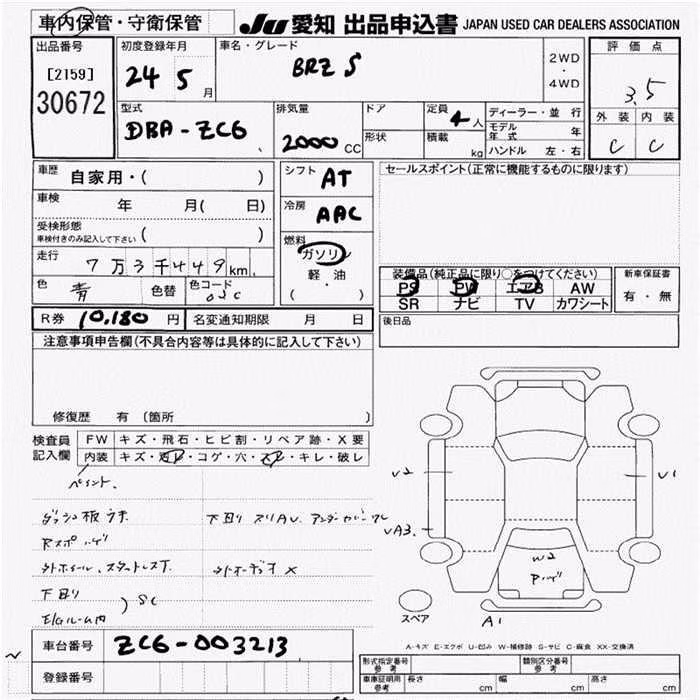 車内保管・守衛保管 JU 愛知 出品申込書 JAPAN USED CAR DEALERS ASSOCIATION
出品番号 初度登録年月 車名・グレード 評価点
[2159] 24 5月 BRZ S 2WD・4WD 3.5
30672
型式 排気量 ドア 定員 4人 ディーラー・並行 外装 内装
DBA-ZC6 2000CC 形状 積載 kg モデル年式 年 C C
ハンドル 左・右
車歴 自家用・( ) シフト AT セールスポイント(正常に機能するものに限ります)
車検 年 月( 日) 冷房 AAC
受検形態 車検付きのみ記入して下さい ( )
燃料 ガソリン
走行 7万3千449km 軽油
装備品(純正品に限り○をつけてください) 新車保証書
色 青 色替 色コード ( ・ )
PS PW エアB AW 有・無
SR ナビ TV カワシート
R券 10,180円 名変通知期限 月 日 後日品
注意事項申告欄(不具合内容等は具体的に記入して下さい)
修復歴 有 〔箇所
検査員 FW キズ・飛石・ヒビ割・リペア跡・X要
記入欄 内装 キズ・汚レ・コゲ・穴・スレ・キレ・破レ
V2 V1
ペイント、
下廻り スリAU、アンダーカバーワレ
VA3.
W2
下廻り
SC
スペア A1
A-キズ E-エクボ U-凹み W-補修跡 S-サビ C-腐食 XX-交換済
車台番号 ZC6-003213
登録番号
形式指定番号 参考 類別区分番号 参考
車庫証明用 参考 長さ cm 幅 cm 高さ cm